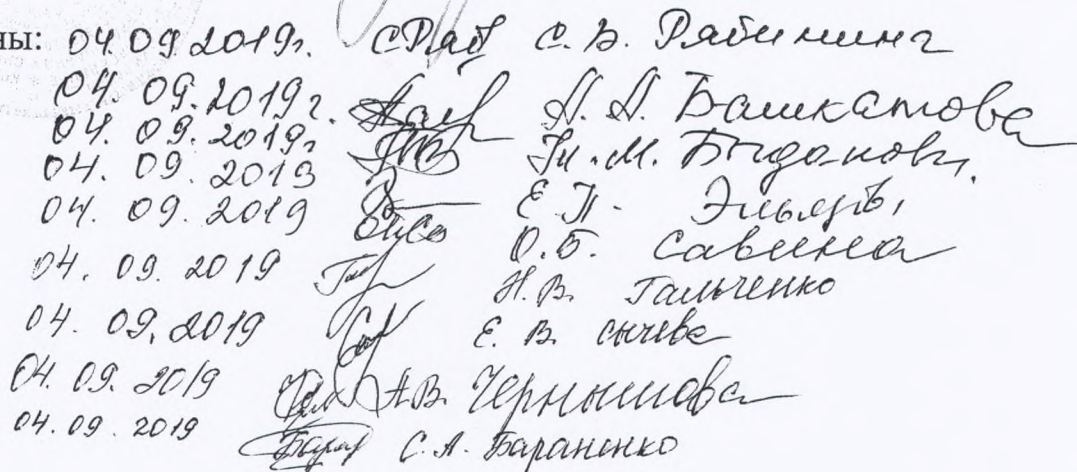 ны: 04.09.2019г. С. В. Рябинина
04.09.2019г. А. А. Башкатова
04.09.2019г Ж.М.
04.09.2019 Е.П.
04.09.2019 О.Б. Савина
04.09.2019 Н.В. Гальченко
04.09.2019 Е.В. Сычева
04.09.2019 А.В. Чернышова
04.09.2019 С.А. Бараненко